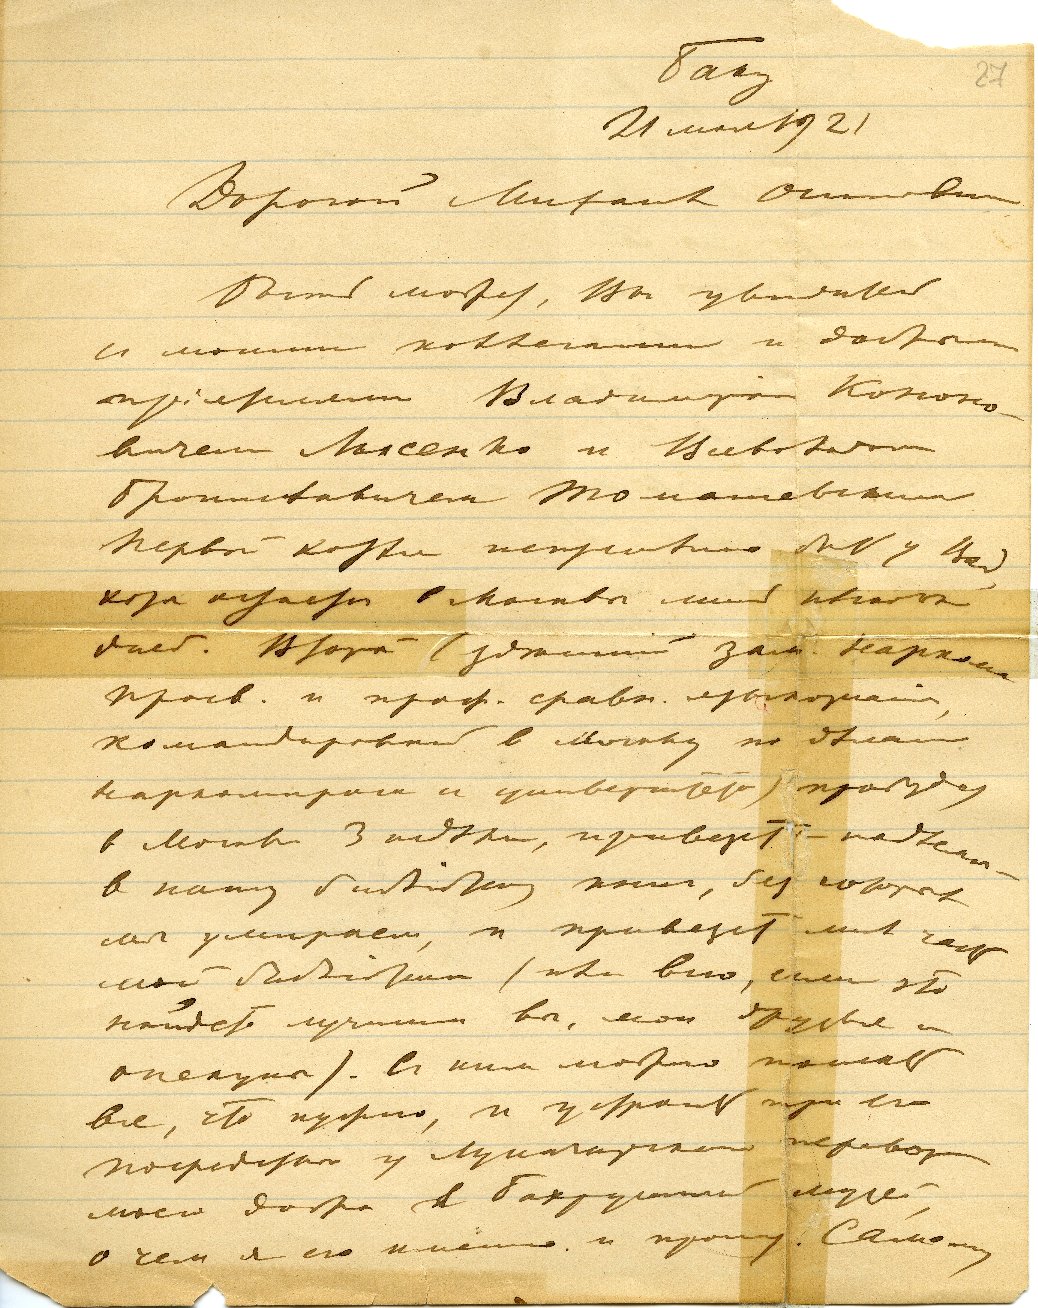 27
Баку
21 мая 1921
Дорогой Михаил Осипович
Быть может, Вы увидитесь
с моими коллегами и добрыми
приятелями Владимиром Кононо-
вичем Лысенко и Всеволодом
Брониславичем Томашевским
Первый хотел непременно быть у Вас,
дней. Второй (здешний зам. Наркома
просв. и проф. сравн. языкознания,
командированный в Москву по делам
Наркомпроса и университета) пробудет
в Москве 3 недели, привезет – надеемся –
в нашу библиотеку книги, без которых
мы умираем, и привезет мне часть
моей библиотеки (или всю, если это
найдете лучшим вы, мои друзья и
опекуны). С ним можно послать
все, что нужно, и устроить при его
посредстве у Луначарского перевоз
моего добра в Бахрушинский музей,
о чем я его именно и прошу. Самому